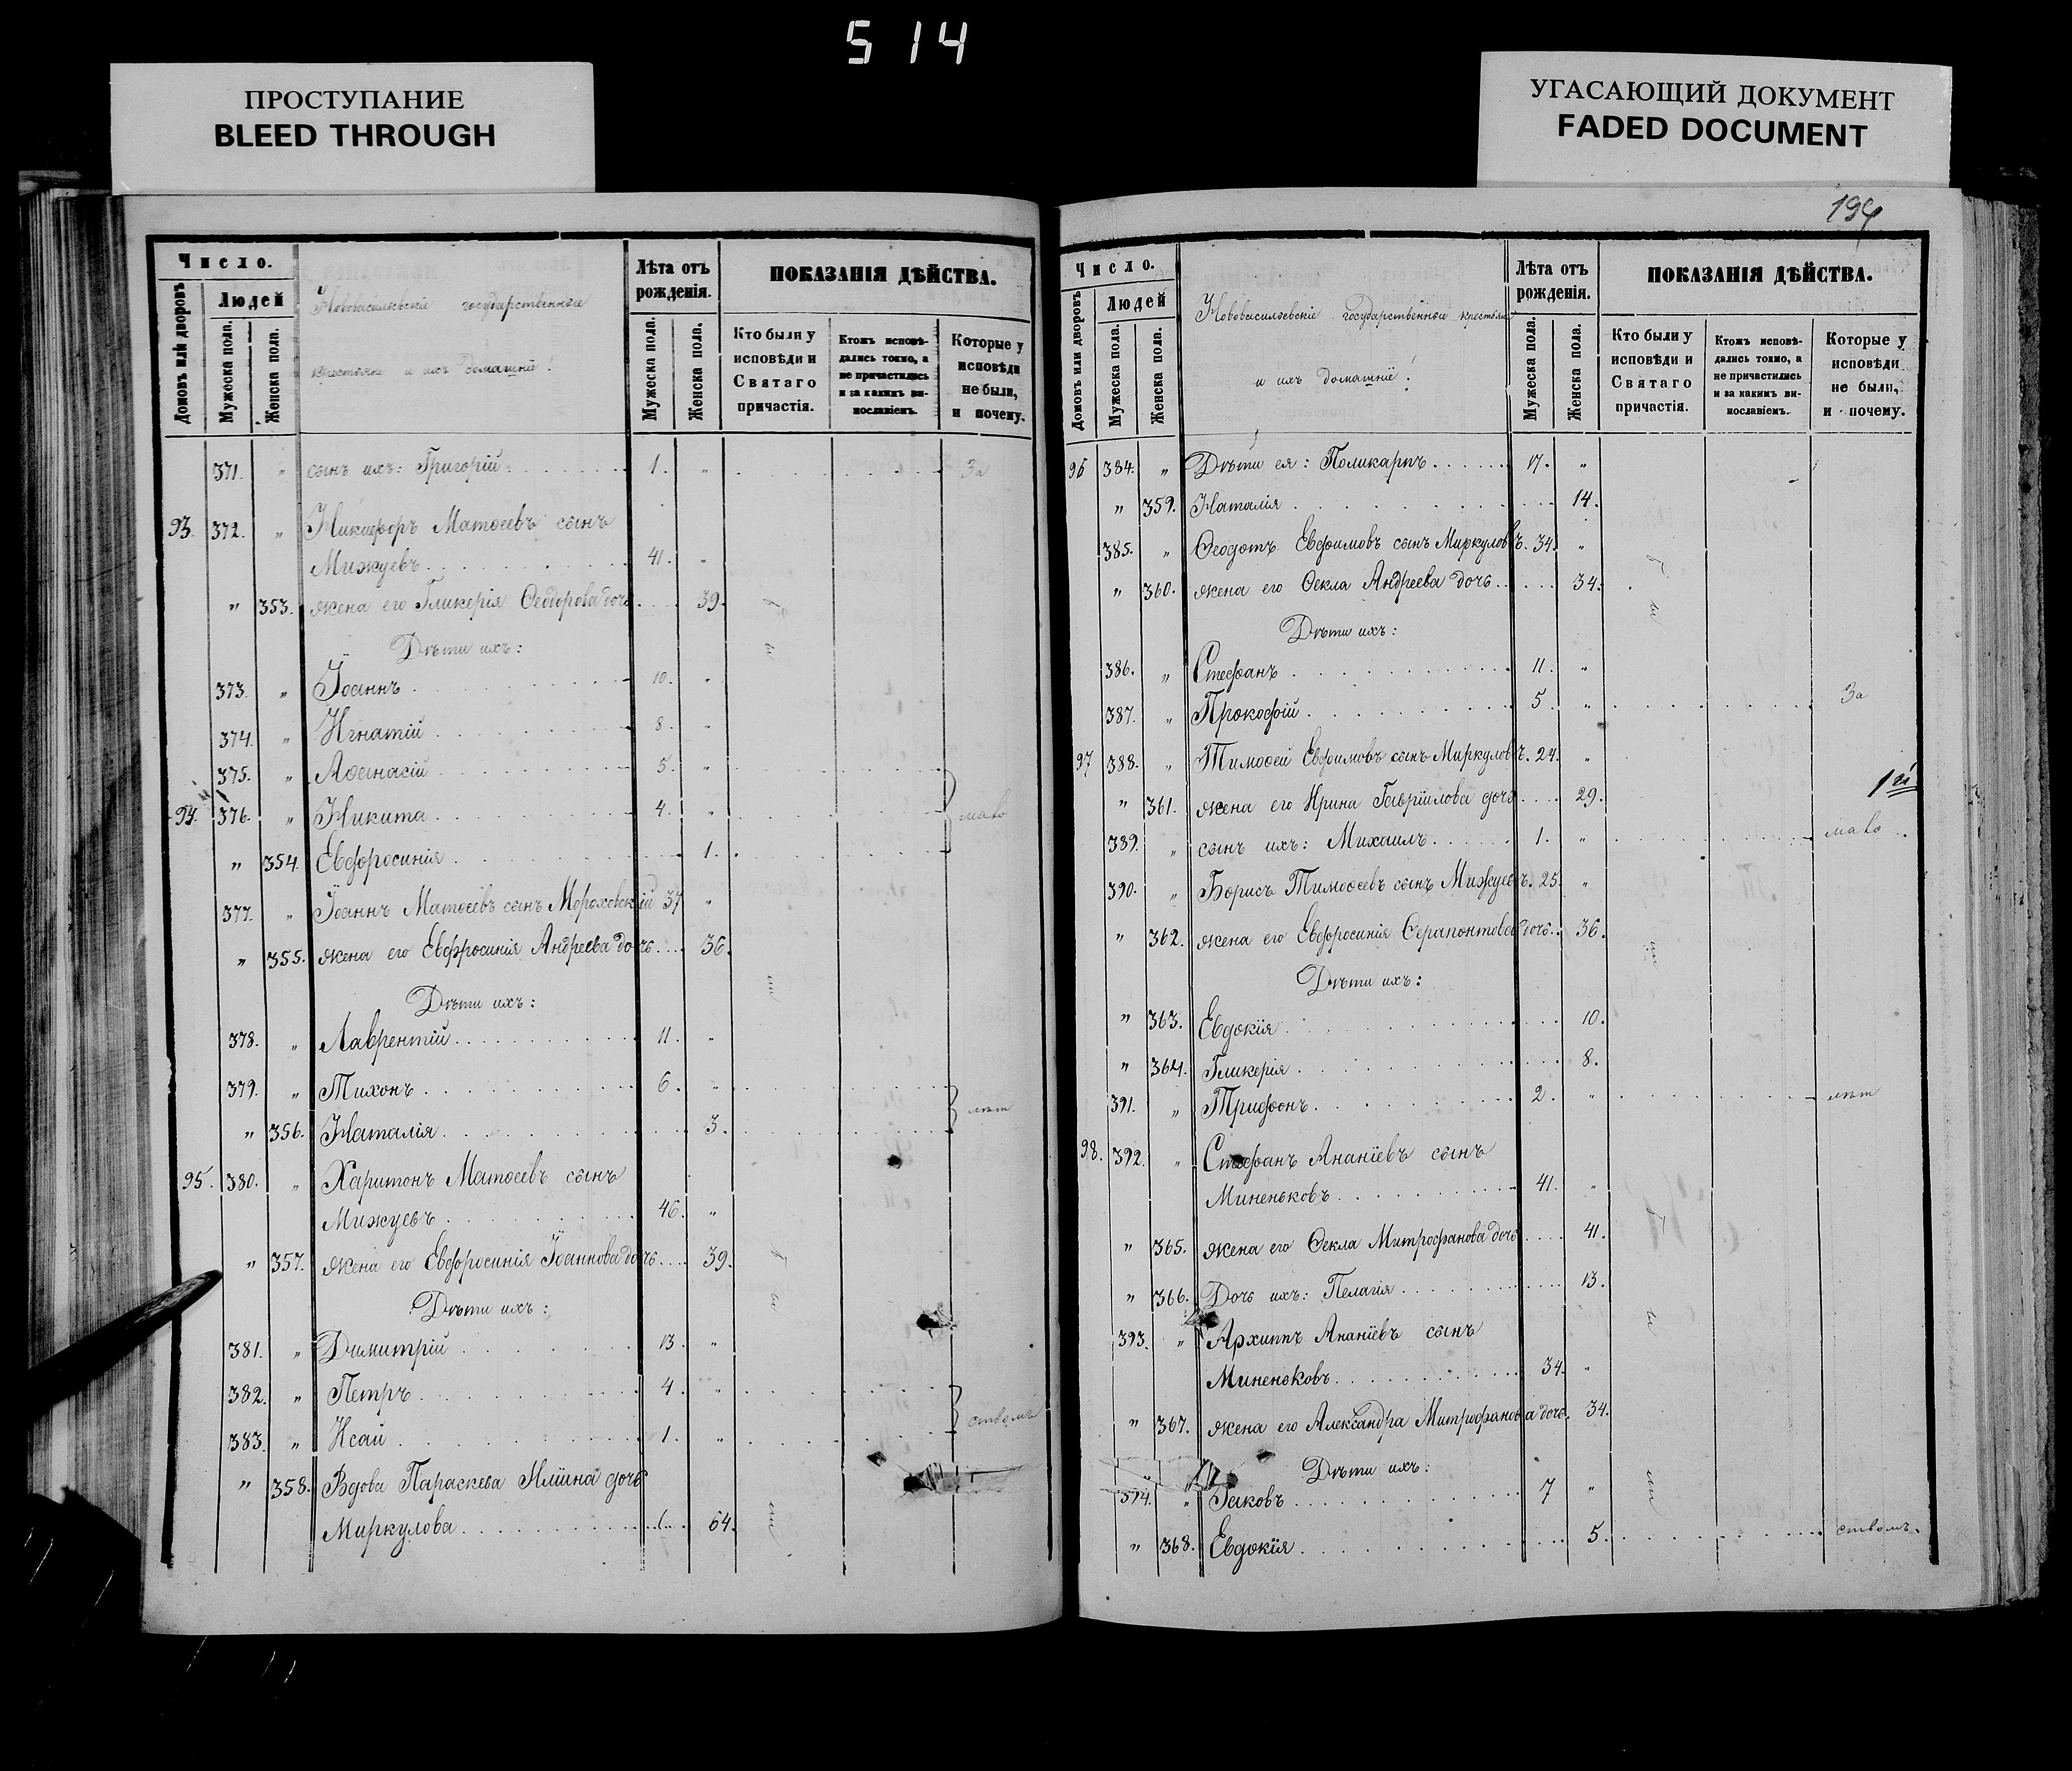 514
ПРОСТУПАНИЕ
BLEED THROUGH
УГАСАЮЩИЙ ДОКУМЕНТ
FADED DOCUMENT
Число.
Домовъ или дворовъ
Людей
Мужеска пола.
Женска пола.
Нововасильевскіе государственные
крестьяне и ихъ домашніе.
Лѣта отъ рожденія.
Мужеска пола.
Женска пола.
ПОКАЗАНІЯ ДѢЙСТВА.
Кто были у исповѣди и Святаго причастія.
Ктожъ исповѣдались токмо, а не причастились и за какимъ винословіемъ.
Которые у исповѣди не были, и почему.
371. " сынъ ихъ: Григорій 1. " За
93. 372. " Никифоръ Матѳеевъ сынъ
Мижуевъ 41. "
" 353. жена его Гликерія Ѳеодорова дочь 39. б
Дѣти ихъ: ы
373. " Іоаннъ 10. "
374. " Игнатій 8. "
375. " Аѳанасій 5. "
94. 376. " Никита 4. " мало
" 354. Евфросинія 1.
377. " Іоаннъ Матѳеевъ сынъ Мороховскій 37 "
" 355. жена его Евфросинія Андреева дочь 36.
Дѣти ихъ: ли
378. " Лаврентій 11. "
379. " Тихонъ 6. "
" 356. Наталія 3. лѣт
95. 380. " Харитонъ Матѳеевъ сынъ
Мижуевъ 46. "
" 357. жена его Евфросинія Іоаннова дочь 39. б
Дѣти ихъ: ы
381. " Димитрій 13. "
382. " Петръ 4. "
383. " Исаій 1. " ствомъ
" 358. Вдова Параскева Иліина дочь
Миркулова 64. ли
194
Число.
Домовъ или дворовъ
Людей
Мужеска пола.
Женска пола.
Нововасильевскіе государственные крестьяне
и ихъ домашніе:
Лѣта отъ рожденія.
Мужеска пола.
Женска пола.
ПОКАЗАНІЯ ДѢЙСТВА.
Кто были у исповѣди и Святаго причастія.
Ктожъ исповѣдались токмо, а не причастились и за какимъ винословіемъ.
Которые у исповѣди не были, и почему.
96 384. " Дѣти ея: Поликарпъ 17. "
" 359. Наталія 14.
385. " Ѳеодотъ Евфимовъ сынъ Миркуловъ. 34. " б
" 360. жена его Ѳекла Андреева дочь 34. ы
Дѣти ихъ:
386. " Стефанъ 11. "
387. " Прокофій 5. " За
97 388. " Тимоѳей Евфимовъ сынъ Миркуловъ. 24. "
" 361. жена его Ирина Гавріилова дочь 29.
389. " сынъ ихъ: Михаилъ 1. " мало
390. " Борисъ Тимоѳеевъ сынъ Мижуевъ. 25. "
" 362. жена его Евфросинія Ѳерапонтова дочь 36. ли
Дѣти ихъ:
" 363. Евдокія 10.
" 364. Гликерія 8.
391. " Трифонъ 2. " лѣт
98. 392. " Стефанъ Ананіевъ сынъ
Миненьковъ 41. "
" 365. жена его Ѳекла Митрофанова дочь 41. б
" 366. Дочь ихъ: Пелагія 13.
393. " Архиппъ Ананіевъ сынъ ы
Миненьковъ 34. "
" 367. жена его Александра Митрофанова дочь. 34.
Дѣти ихъ:
394. " Іаковъ 7 " ли
" 368. Евдокія 5. ствомъ.